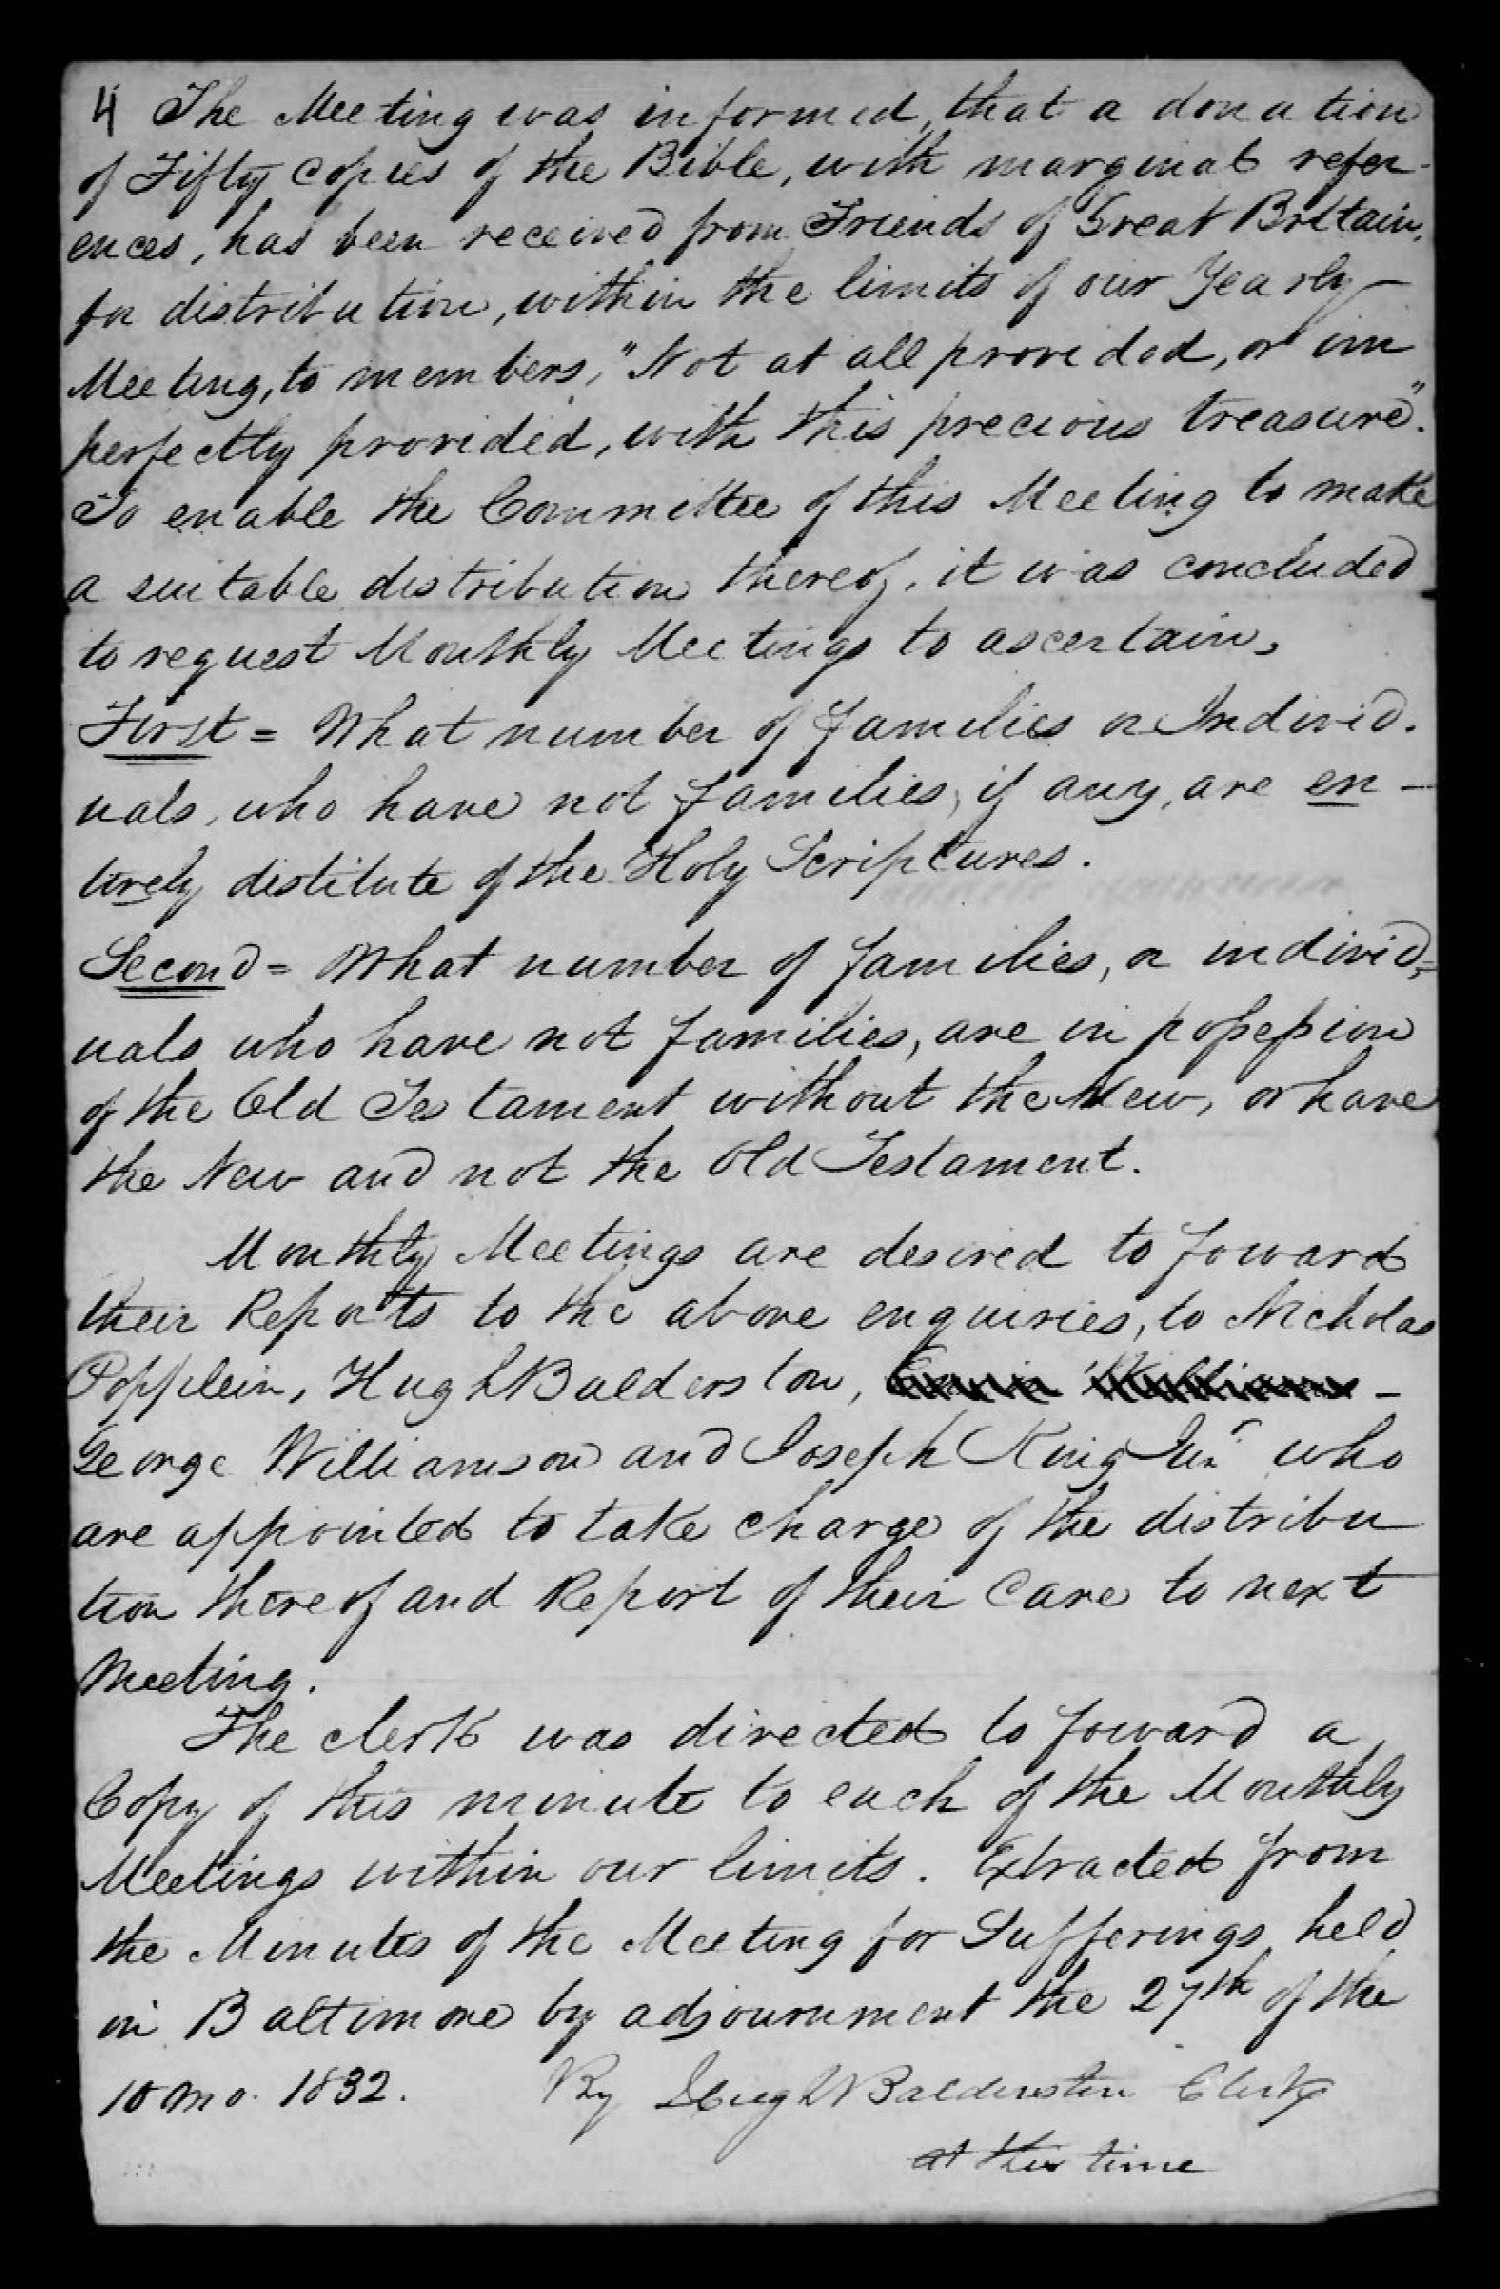 4 The Meeting was informed, that a donation
of Fifty Copies of the Bible, with marginal refer-
ences, has been received from Friends of Great Britain,
for distribution, within the limits of our Yearly
Meeting, to members, "Not at all provided, or im
perfectly provided, with this precious treasure".
To enable the Committee of this Meeting to make
a suitable distribution thereof, it was concluded
to request Monthly Meetings to ascertain,
First = What number of families or Individ.
uals, who have not families, if any, are en -
tirely distitute of the Holy Scriptures.
Second = What number of families, or individ=
uals who have not families, are in possession
of the Old Testament without the New, or have
the New and not the Old Testament.
Monthly Meetings are desired to foward
their Reports to the above enquiries, to Nicholas
Popplein, Hugh Balderston, -
George Williamson and Joseph King Junr who
are appointed to take charge of the distribu
tion thereof and Report of their Care to next
Meeting.
The clerk was directed to foward a
Copy of this minute to each of the Monthly
Meetings within our limits. Extracted from
the Minutes of the Meeting for Sufferings, held
in Baltimore by adjournment the 27th of the
10 mo. 1832. By Hugh Balderston Clerk
at this time